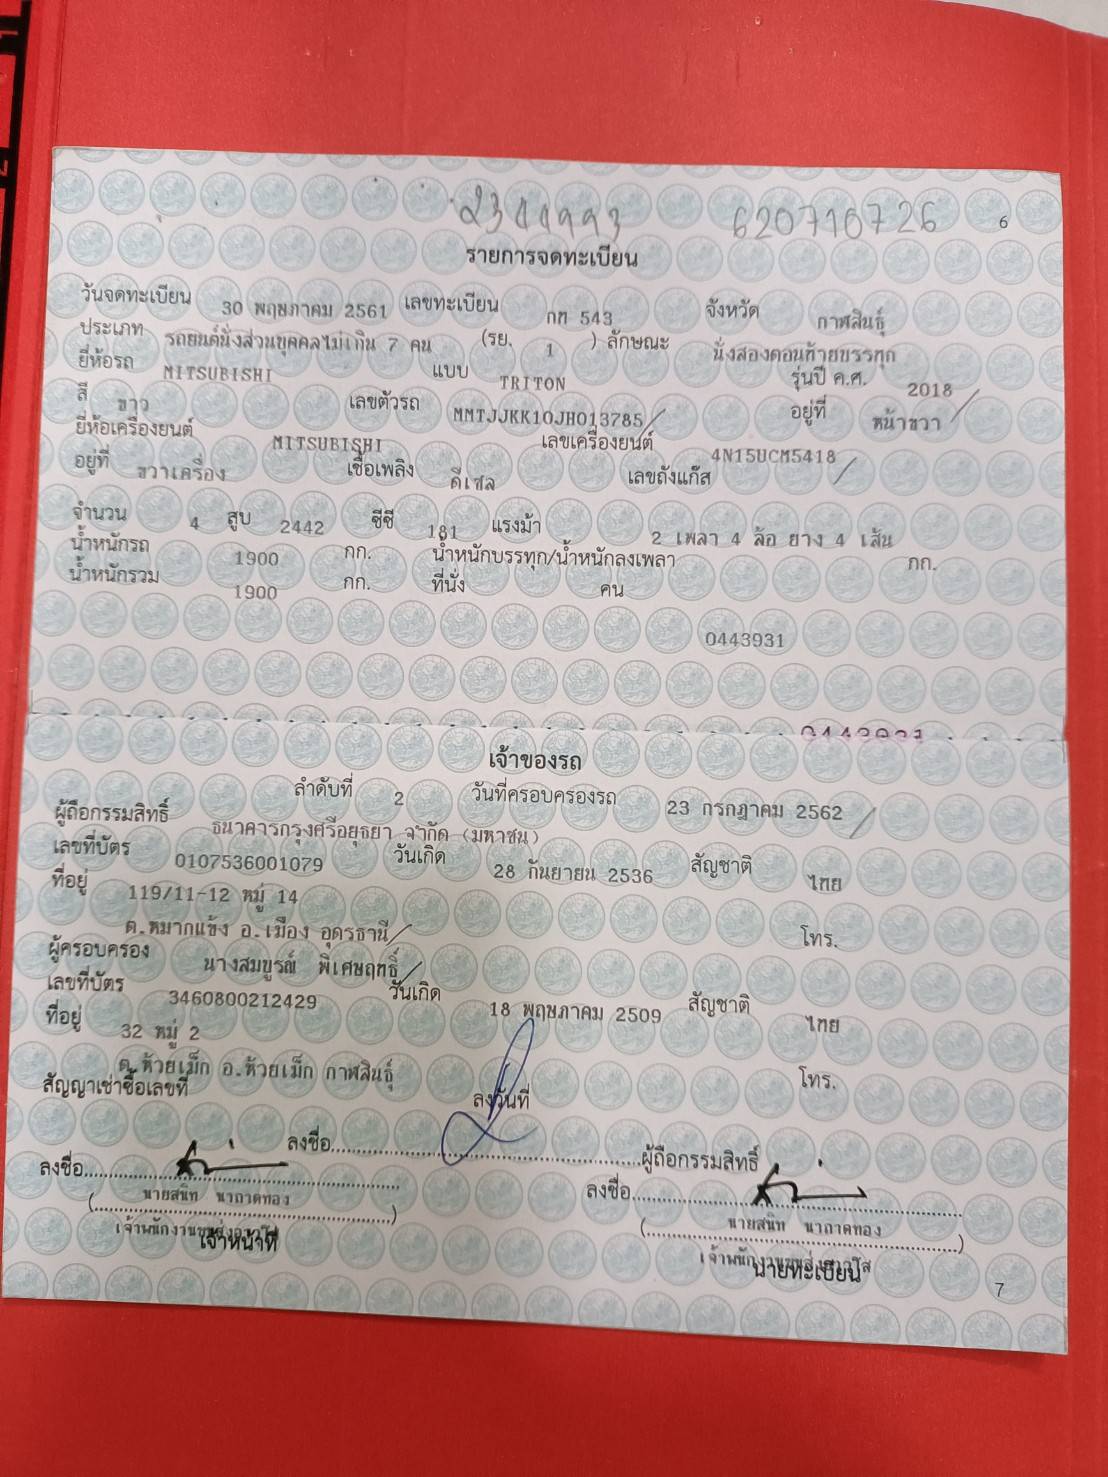 2344993 620710726 6
รายการจดทะเบียน
วันจดทะเบียน 30 พฤษภาคม 2561 เลขทะเบียน กท 543 จังหวัด กาฬสินธุ์
ประเภท รถยนต์นั่งส่วนบุคคลไม่เกิน 7 คน (รย. 1 ) ลักษณะ นั่งสองตอนท้ายบรรทุก
ยี่ห้อรถ MITSUBISHI แบบ TRITON รุ่นปี ค.ศ. 2018
สี ขาว เลขตัวรถ MMTJJKK10JH013785 อยู่ที่ หน้าขวา
ยี่ห้อเครื่องยนต์ MITSUBISHI เลขเครื่องยนต์ 4N15UCM5418
อยู่ที่ ขวาเครื่อง เชื้อเพลิง ดีเซล เลขถังแก๊ส
จำนวน 4 สูบ 2442 ซีซี 181 แรงม้า 2 เพลา 4 ล้อ ยาง 4 เส้น
น้ำหนักรถ 1900 กก. น้ำหนักบรรทุก/น้ำหนักลงเพลา กก.
น้ำหนักรวม 1900 กก. ที่นั่ง คน
0443931
0443931
เจ้าของรถ
ลำดับที่ 2 วันที่ครอบครองรถ 23 กรกฎาคม 2562
ผู้ถือกรรมสิทธิ์ ธนาคารกรุงศรีอยุธยา จำกัด (มหาชน)
เลขที่บัตร 0107536001079 วันเกิด 28 กันยายน 2536 สัญชาติ ไทย
ที่อยู่ 119/11-12 หมู่ 14
ต.หมากแข้ง อ.เมือง อุดรธานี โทร.
ผู้ครอบครอง นางสมบูรณ์ พิเศษฤทธิ์
เลขที่บัตร 3460800212429 วันเกิด 18 พฤษภาคม 2509 สัญชาติ ไทย
ที่อยู่ 32 หมู่ 2
ต.ห้วยเม็ก อ.ห้วยเม็ก กาฬสินธุ์ โทร.
สัญญาเช่าซื้อเลขที่ ลงวันที่
ลงชื่อ ผู้ถือกรรมสิทธิ์
ลงชื่อ ลงชื่อ
(นายสนิท นาถาดทอง) (นายสนิท นาถาดทอง)
เจ้าพนักงานขนส่งอาวุโส เจ้าพนักงานขนส่งอาวุโส
เจ้าหน้าที่ นายทะเบียน
7